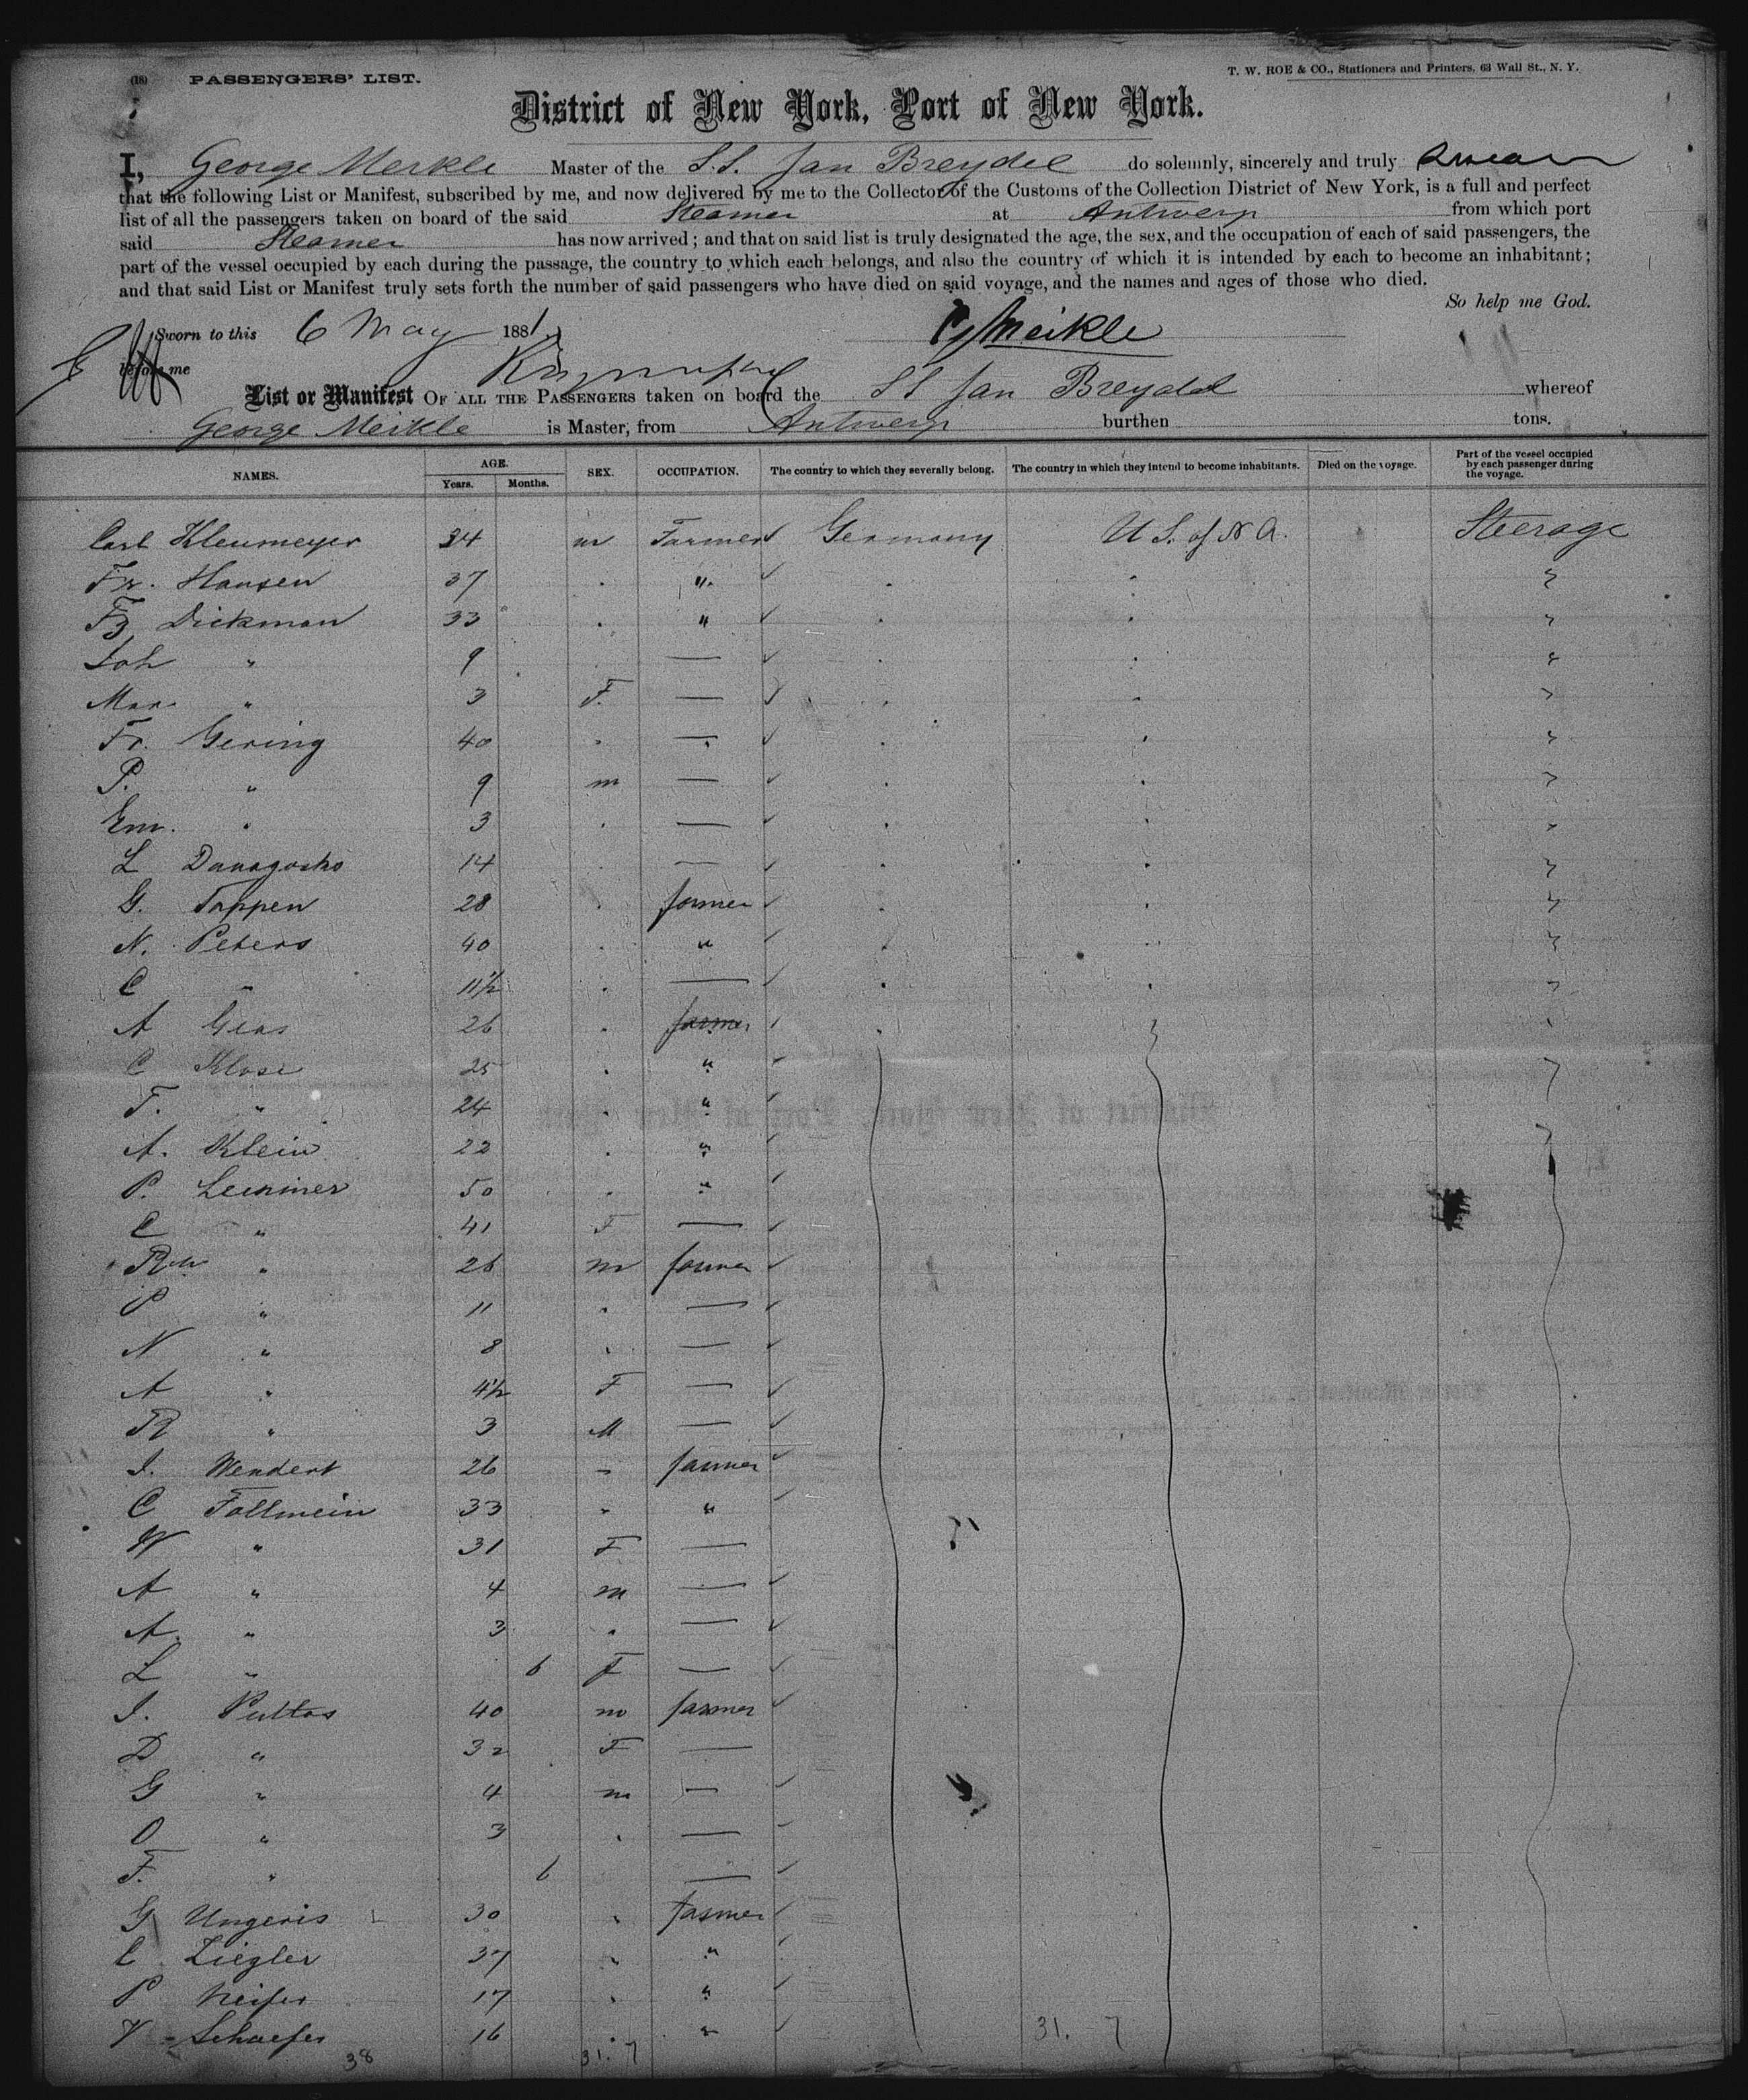 (18) PASSENGERS' LIST.
T. W. ROE & CO., Stationers and Printers, 63 Wall St., N. Y.
District of New York, Port of New York.
I, George Meikle Master of the S.S. Jan Breydel do solemnly, sincerely and truly Swear
that the following List or Manifest, subscribed by me, and now delivered by me to the Collector of the Customs of the Collection District of New York, is a full and perfect
list of all the passengers taken on board of the said Steamer at Antwerp from which port
said Steamer has now arrived; and that on said list is truly designated the age, the sex, and the occupation of each of said passengers, the
part of the vessel occupied by each during the passage, the country to which each belongs, and also the country of which it is intended by each to become an inhabitant;
and that said List or Manifest truly sets forth the number of said passengers who have died on said voyage, and the names and ages of those who died.
So help me God.
Sworn to this 6 May 1881. G Meikle
before me
List or Manifest OF ALL THE PASSENGERS taken on board the SS Jan Breydel whereof
George Meikle is Master, from Antwerp burthen tons.
NAMES. AGE. Years. Months. SEX. OCCUPATION. The country to which they severally belong. The country in which they intend to become inhabitants. Died on the voyage. Part of the vessel occupied by each passenger during the voyage.
Carl Kleumeyer 34 m Farmer Germany U S. of N A. Steerage
Fr. Hansen 37 . " . . "
Fz Dickman 33 . " . . "
Joh " 9 . — . . "
Mar " 3 F. — . . "
Fr. Gering 40 . — . . "
P. " 9 m — . . "
Em. " 3 . — . . "
L 14 . — . . "
G. Tappen 28 . farmer . . "
N. Peters 40 . " . . "
C " 11½ . — . . "
A 26 . farmer
C Klose 25 . "
F. " 24 . "
A. Klein 22 . "
P. 50 . "
C " 41 F —
" 26 m farmer
P " 11 . —
N " 8 . —
A " 4½ F —
" 3 M —
J. Wendert 26 " farmer
C Follmein 33 " "
W " 31 F —
A " 4 m —
A. " 3 " —
L " 6 F —
J. Pultos 40 m farmer
D " 32 F —
G " 4 m —
O " 3 . —
F. " 6 —
G Ungeris 30 " farmer
C Ziegler 37 " "
P 17 . "
V Schaefer 16 . "
38 31. 7 31. 7